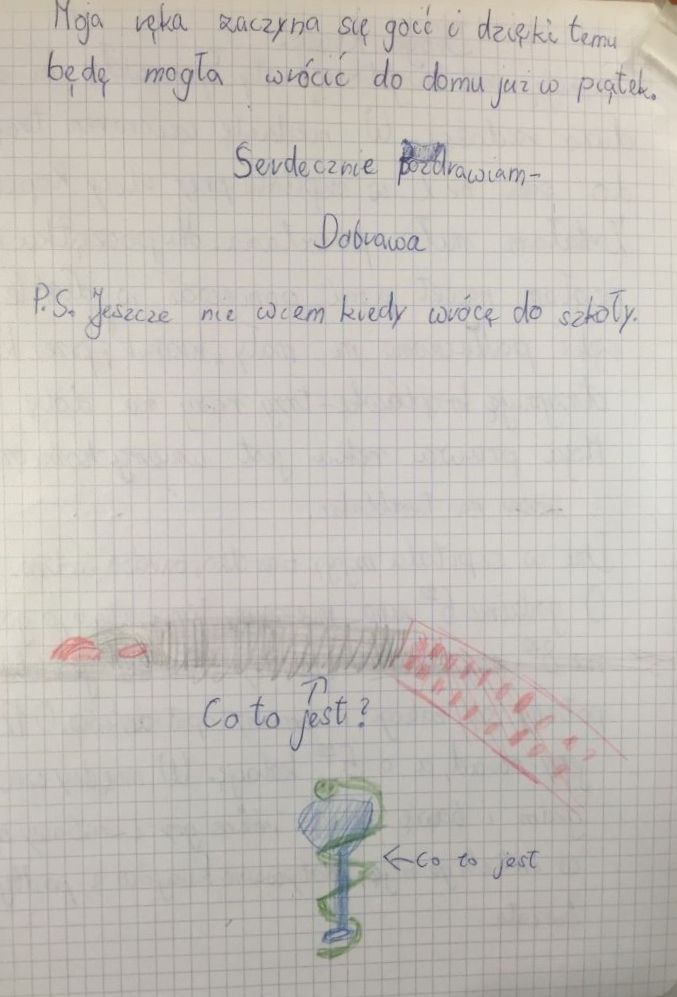 Moja ręka zaczyna się goić i dzięki temu
będę mogła wrócić do domu już w piątek.
Serdecznie pozdrawiam-
Dobrawa
P.S. Jeszcze nie wiem kiedy wrócę do szkoły.
Co to jest?
←Co to jest